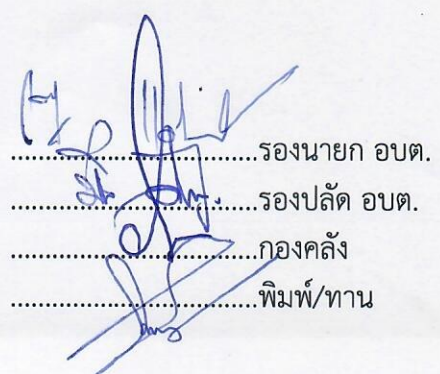 ....................................รองนายก อบต.
....................................รองปลัด อบต.
....................................กองคลัง
....................................พิมพ์/ทาน